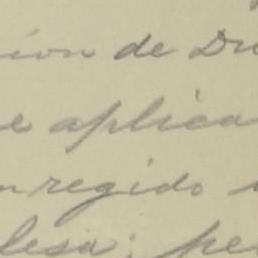 ión de Du
e aplica
nregido
lesa; pe